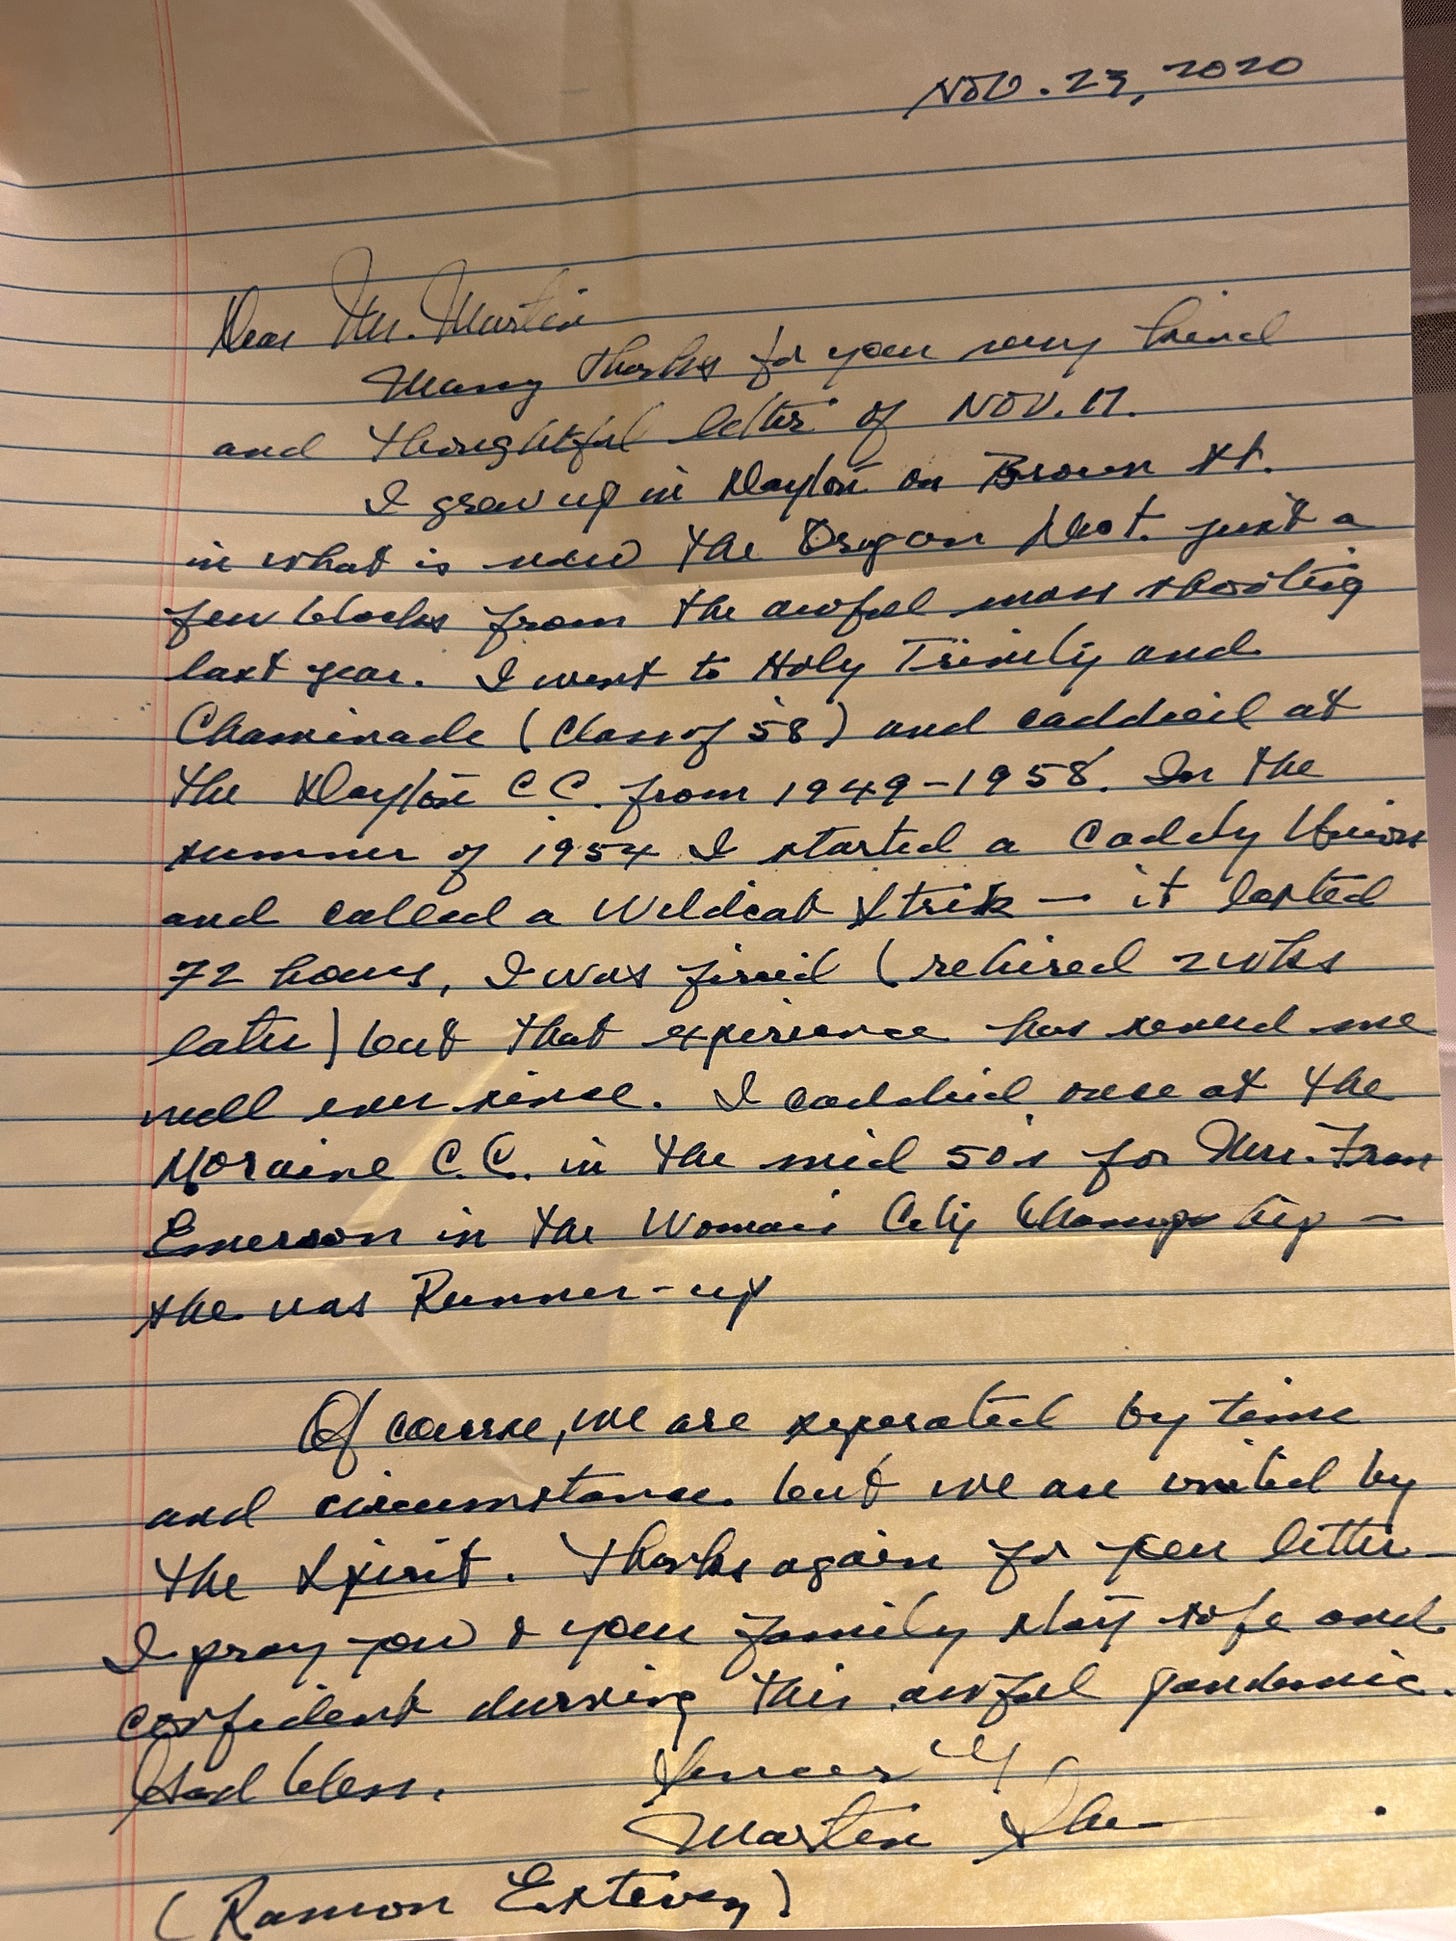 Nov. 23, 2020
Dear Mr. Martin
Many thanks for your very kind
and thoughtful letter of Nov. 17.
I grew up in Dayton on Brown St.
in what is now the Oregon Dist. just a
few blocks from the awful mass shooting
last year. I went to Holy Trinity and
Chaminade (Class of '58) and caddied at
the Dayton C.C. from 1949-1958. In the
summer of 1954 I started a Caddy Union
and called a Wildcat Strike - it lasted
72 hours, I was fired (rehired 2 wks
later) but that experience has served me
well ever since. I caddied once at the
Moraine C.C. in the mid 50's for Mrs. Fran
Emerson in the Woman's City Championship -
she was Runner-up
Of course, we are seperated by time
and circumstance. but we are united by
the Spirit. Thanks again for your letter -
I pray you & your family stay safe and
confident durring this awful pandemic.
God bless. Sincerely
Martin Sheen
(Ramon Estevez)